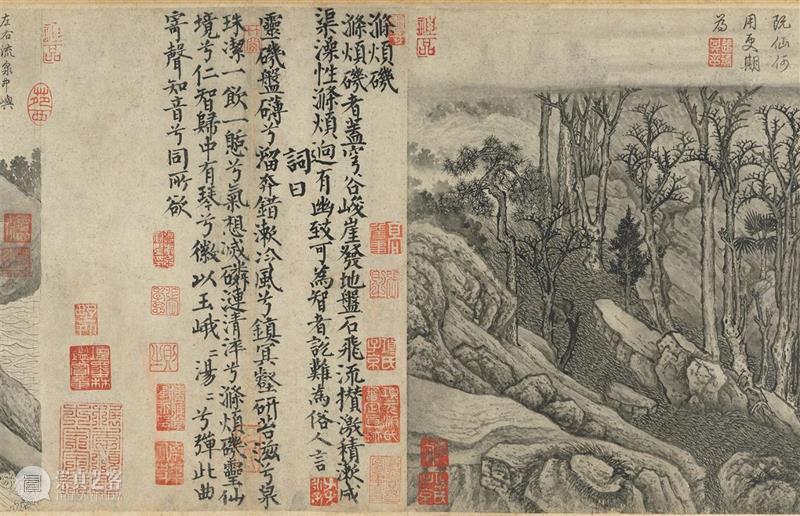 既仙何
用更期
為
滌煩磯
滌煩磯者蓋穹谷峻崖發地盤石飛流攢激積漱成
渠澡性滌煩迥有幽致可為智者說難為俗人言
詞曰
靈磯盤礴兮溜奔錯漱冷風兮鎮冥壑研苔滋兮泉
珠潔一飲一憩兮氣想滅磷漣清泙兮滌煩磯靈仙
境兮仁智歸中有琴兮徽以玉峨〻湯〻兮彈此曲
寄聲知音兮同所欲
左右流泉帀嶼
崇真艺客